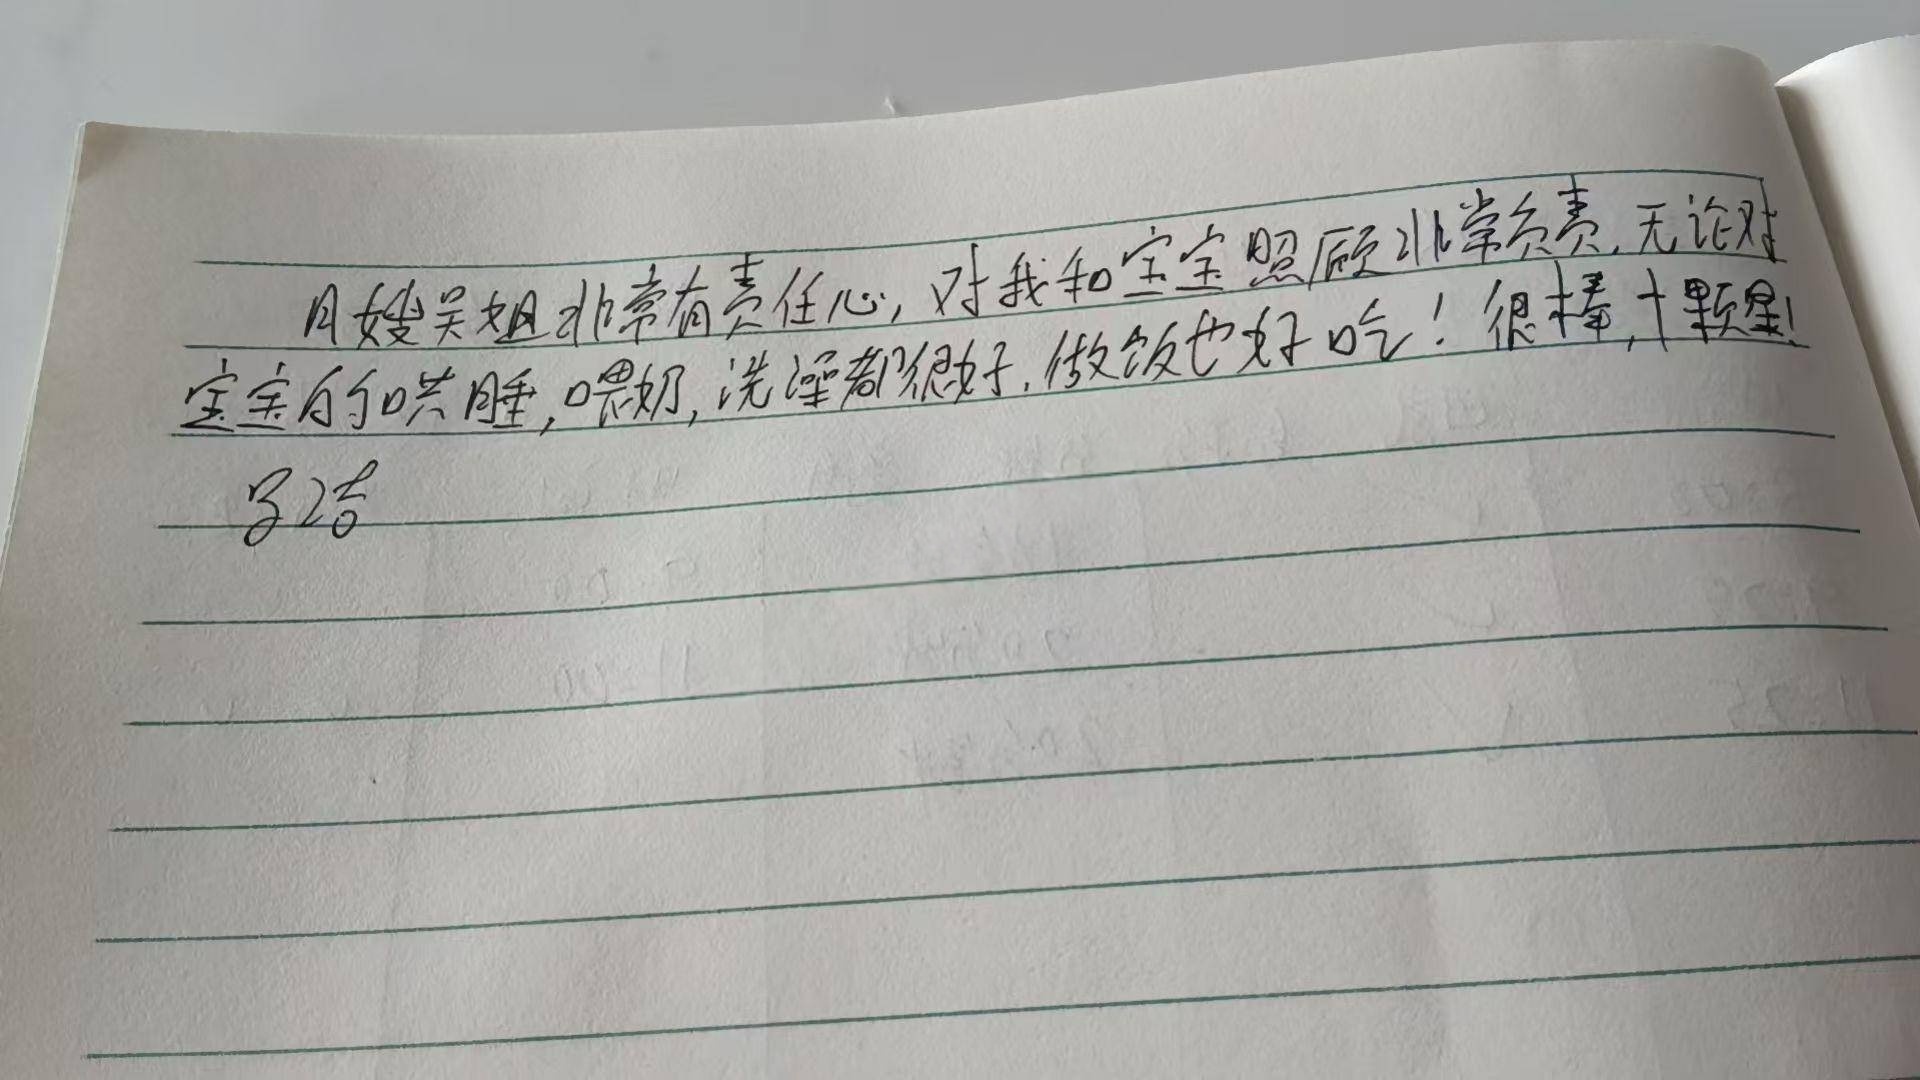 月嫂吴姐非常有责任心,对我和宝宝照顾非常负责,无论对
宝宝的哄睡,喂奶,洗澡都很好.做饭也好吃!很棒,十颗星!